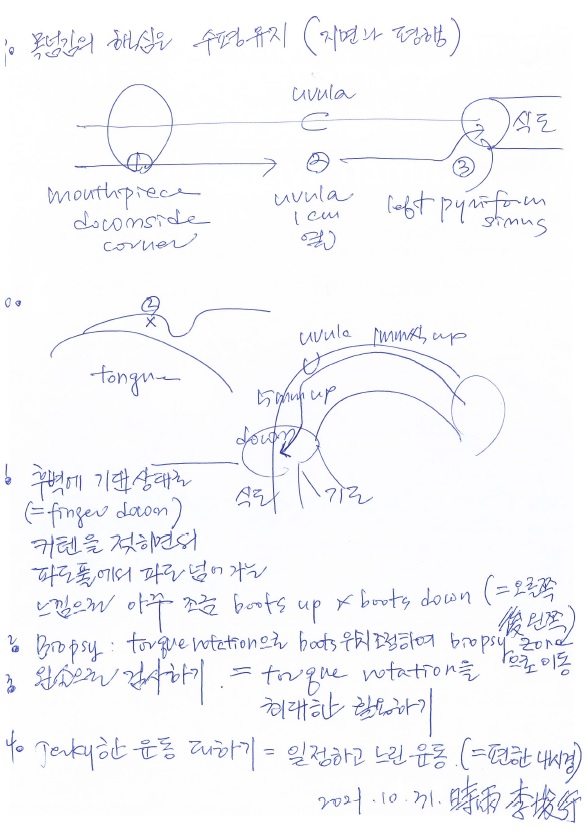 1. 목넘김의 핵심은 수평유지 (지면과 평행)
uvula
식도
① ② ③
mouthpiece downside corner
uvula 1cm 옆
left pyriform sinus
②
x
tongue
uvula 1mm씩 up
5mm up
down
식도 기도
후벽에 기댄 상태로
(=finger down)
커텐을 젖히면서
파도풀에서 파도 넘어가는
느낌으로 아주 조금 boots up x boots down (=오른쪽
後 왼쪽)
2. Biopsy : torque rotation으로 boots 위치조정하여 biopsy zone
으로 이동
3. 왼손으로 검사하기 = torque rotation을
최대한 활용하기
4. Jerky한 운동 피하기 = 일정하고 느린 운동. (=편한 내시경)
2021.10.31. 時雨 李俊行